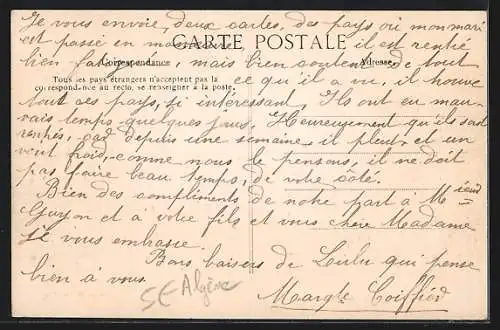 Je vous envoie, deux cartes, des pays où mon mari
est passé en manoeuvre
CARTE POSTALE
il est rentré
bien fatigué, mais bien content de tout
Correspondance
Adresse
ce qu'il a vu, il trouve
Tous les pays étrangers n'acceptent pas la
correspondance au recto, se renseigner à la poste.
tout ces pays, si intéressant, Ils ont eu mau-
vais temps quelques jours. Heureusement qu'ils sont
rentrés, car depuis une semaine il pleut et un
vent froid, comme nous le pensons, il ne doit
pas faire beau temps, de votre côté.
Bien des compliments de notre part à M
Guyon et à votre fils et vous chère Madame
Je vous embrasse.
Bons baisers de Lulu qui pense
bien à vous
Margte Coiffier
Algérie